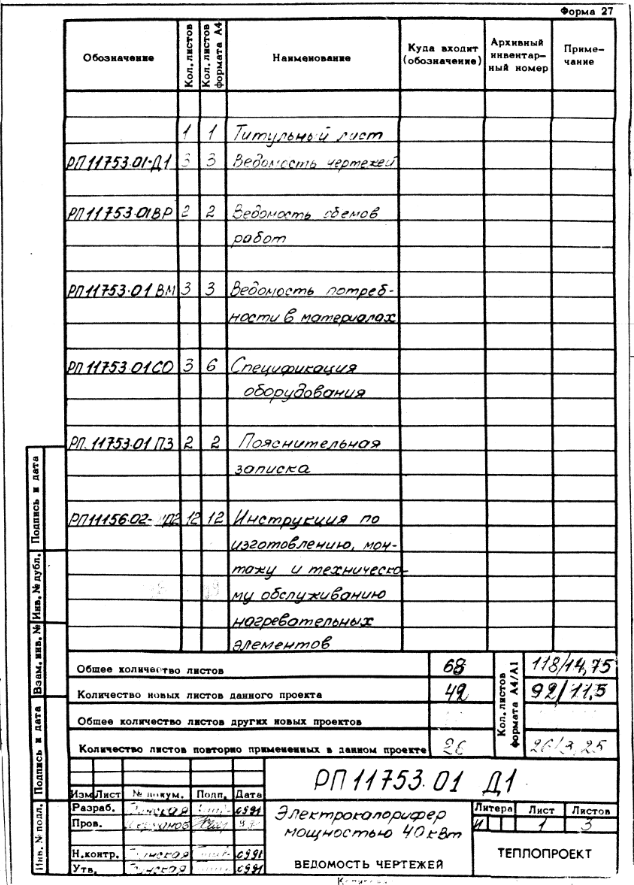 Форма 27
Обозначение
Кол. листов
Кол. листов формата А4
Наименование
Куда входит (обозначение)
Архивный инвентарный номер
Примечание
1 1 Титульный лист
РП11753.01-Д1 3 3 Ведомость чертежей
РП11753.01ВР 2 2 Ведомость объемов
работ
РП11753.01 ВМ 3 3 Ведомость потреб-
ности в материалах
РП 11753.01СО 3 6 Спецификация
оборудования
РП.11753.01 ПЗ 2 2 Пояснительная
записка
РП11156.02- Д2 12 12 Инструкция по
изготовлению, мон-
тажу и техническо-
му обслуживанию
нагревательных
элементов
Общее количество листов 68 118/14,75
Количество новых листов данного проекта 42 92/11,5
Общее количество листов других новых проектов
Количество листов повторно примененных в данном проекте 26 26/3,25
Кол. листов формата А4/А1
Подпись и дата
Инв. № дубл.
Взам. инв. №
Подпись и дата
Инв. № подл.
РП11753.01 Д1
Изм Лист № докум. Подп. Дата
Разраб. 0991
Пров.
Н.контр. 0991
Утв. 0991
Электрокалорифер
мощностью 40 кВт
ВЕДОМОСТЬ ЧЕРТЕЖЕЙ
Литера Лист Листов
И 1 3
ТЕПЛОПРОЕКТ